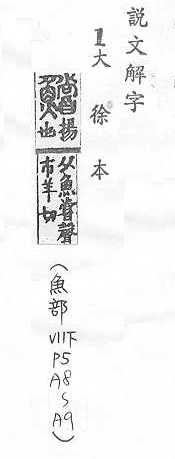 説文解字
1大徐本
鱨揚也
从魚嘗聲
市羊切
(魚部 VII下 P5 A8〜A9)